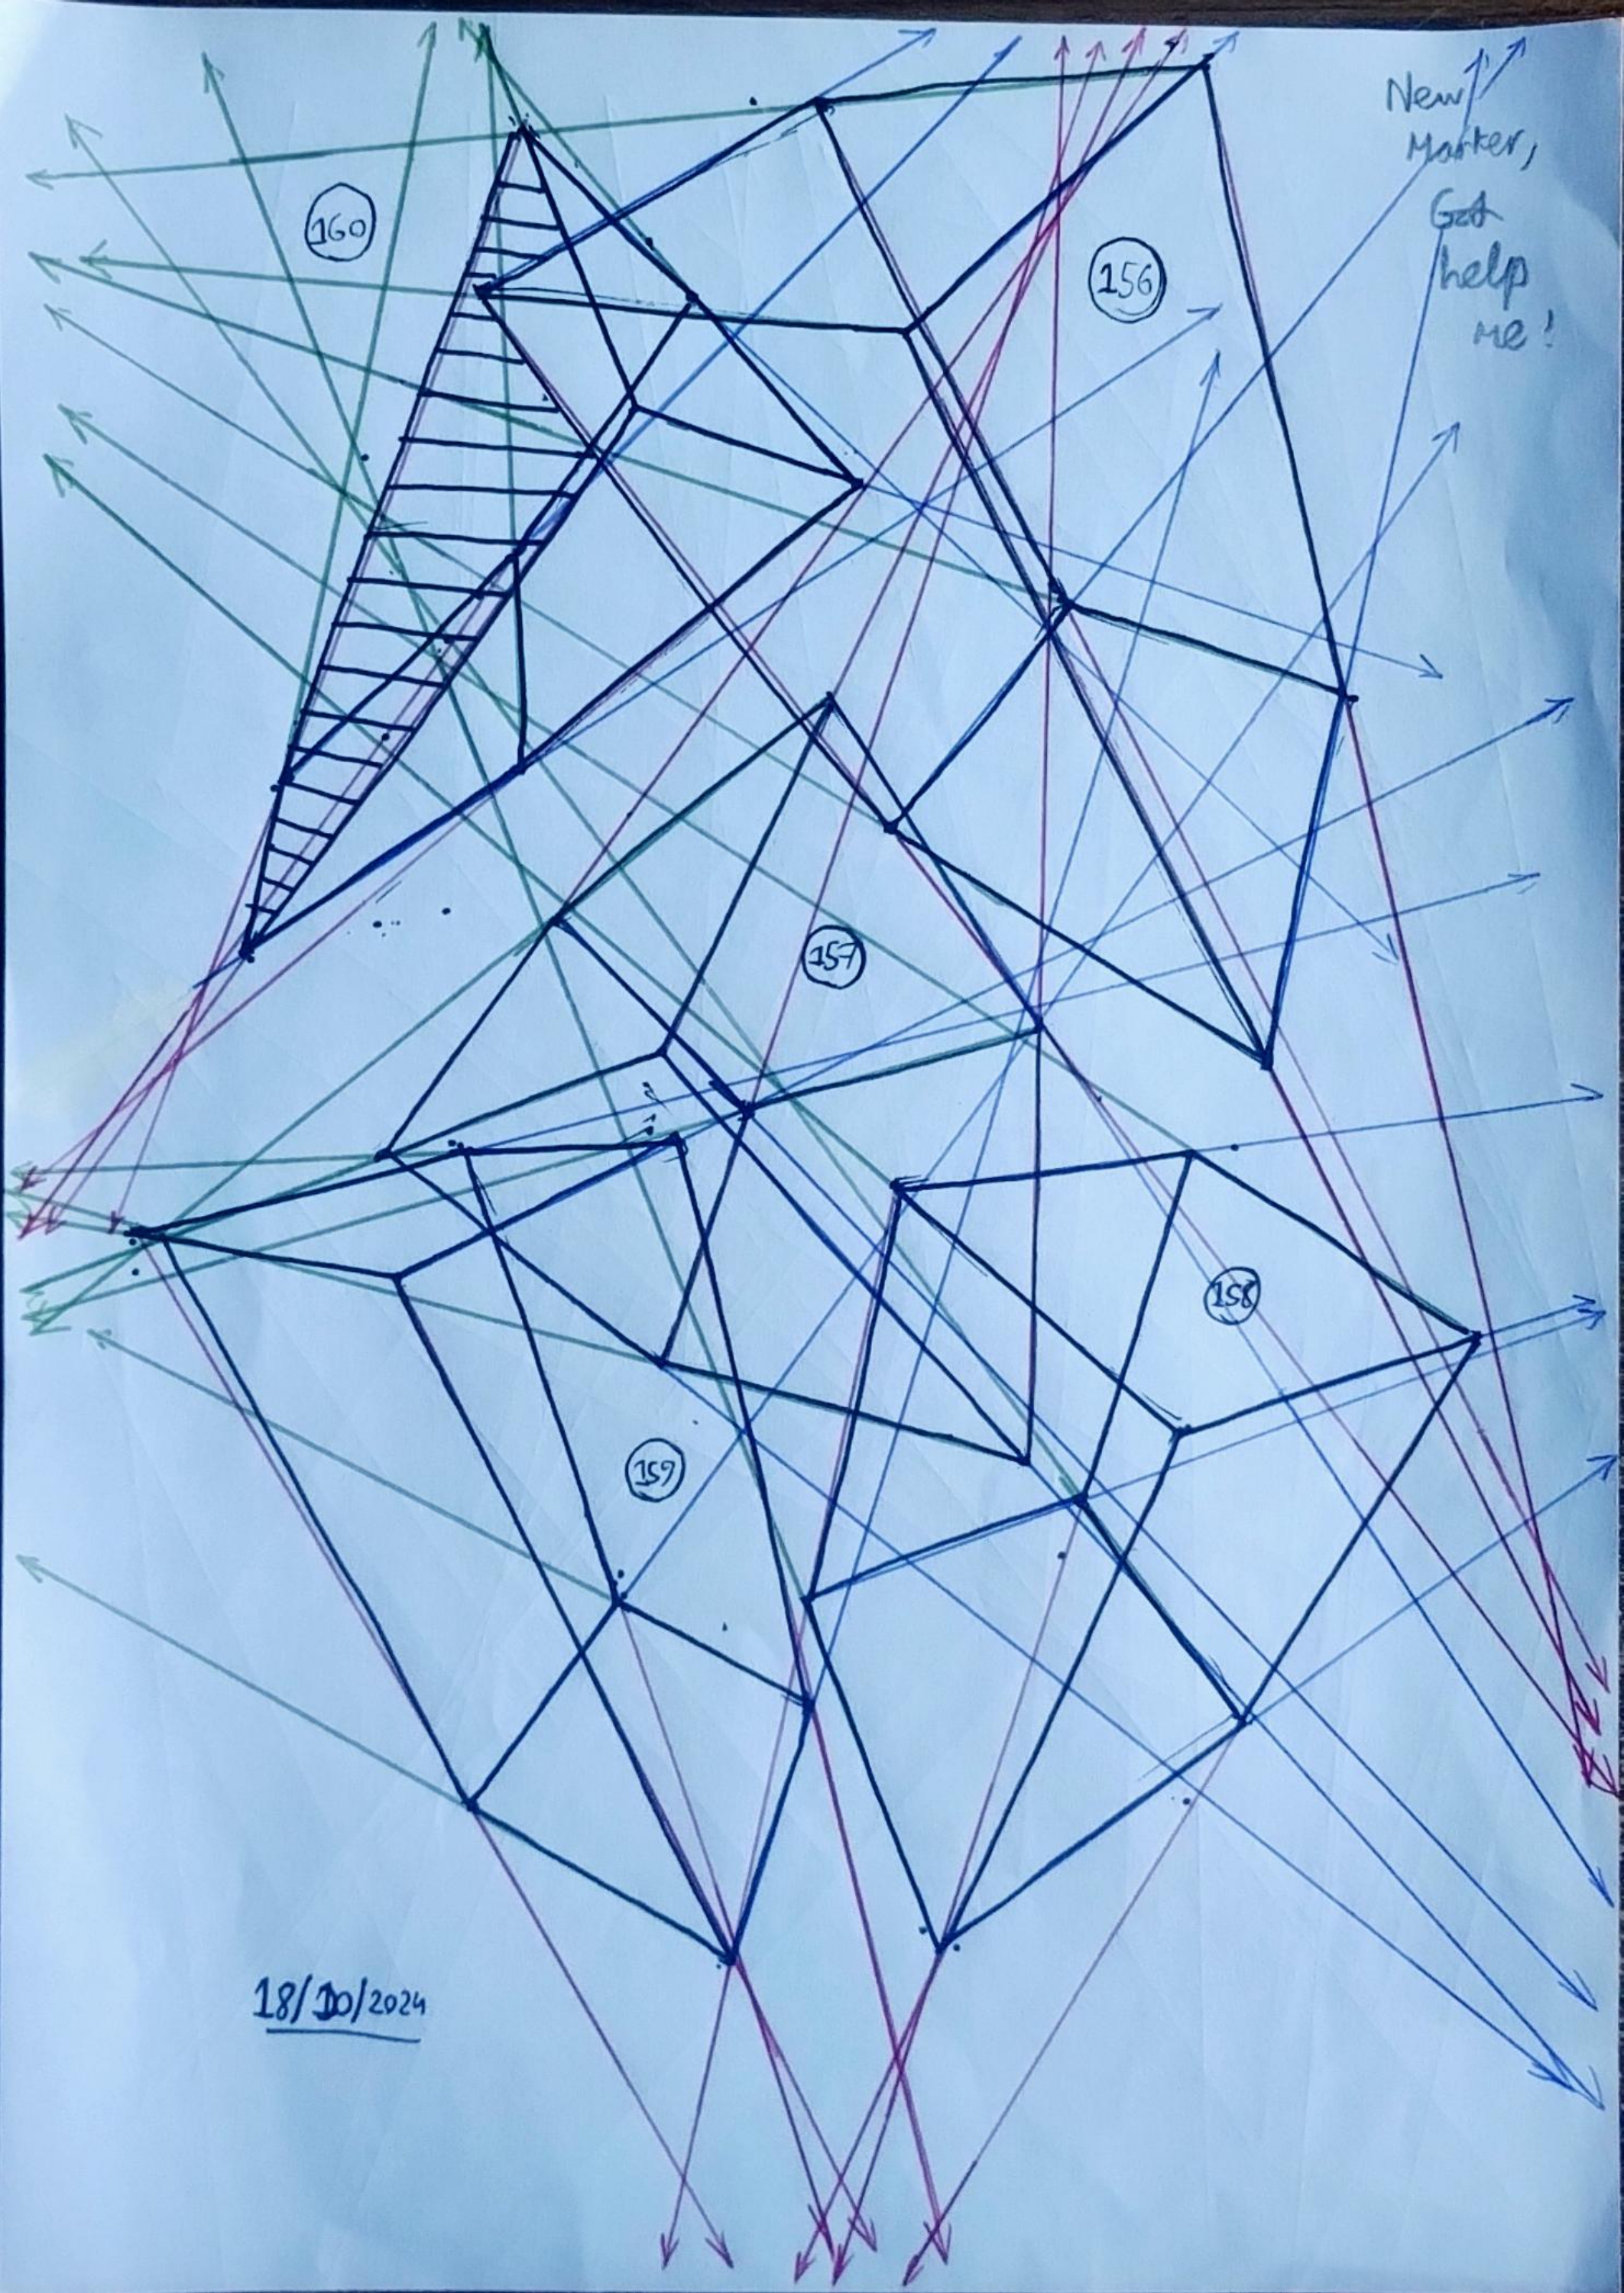 New
Marker,
God
help
me!
160
156
157
158
159
18/10/2024